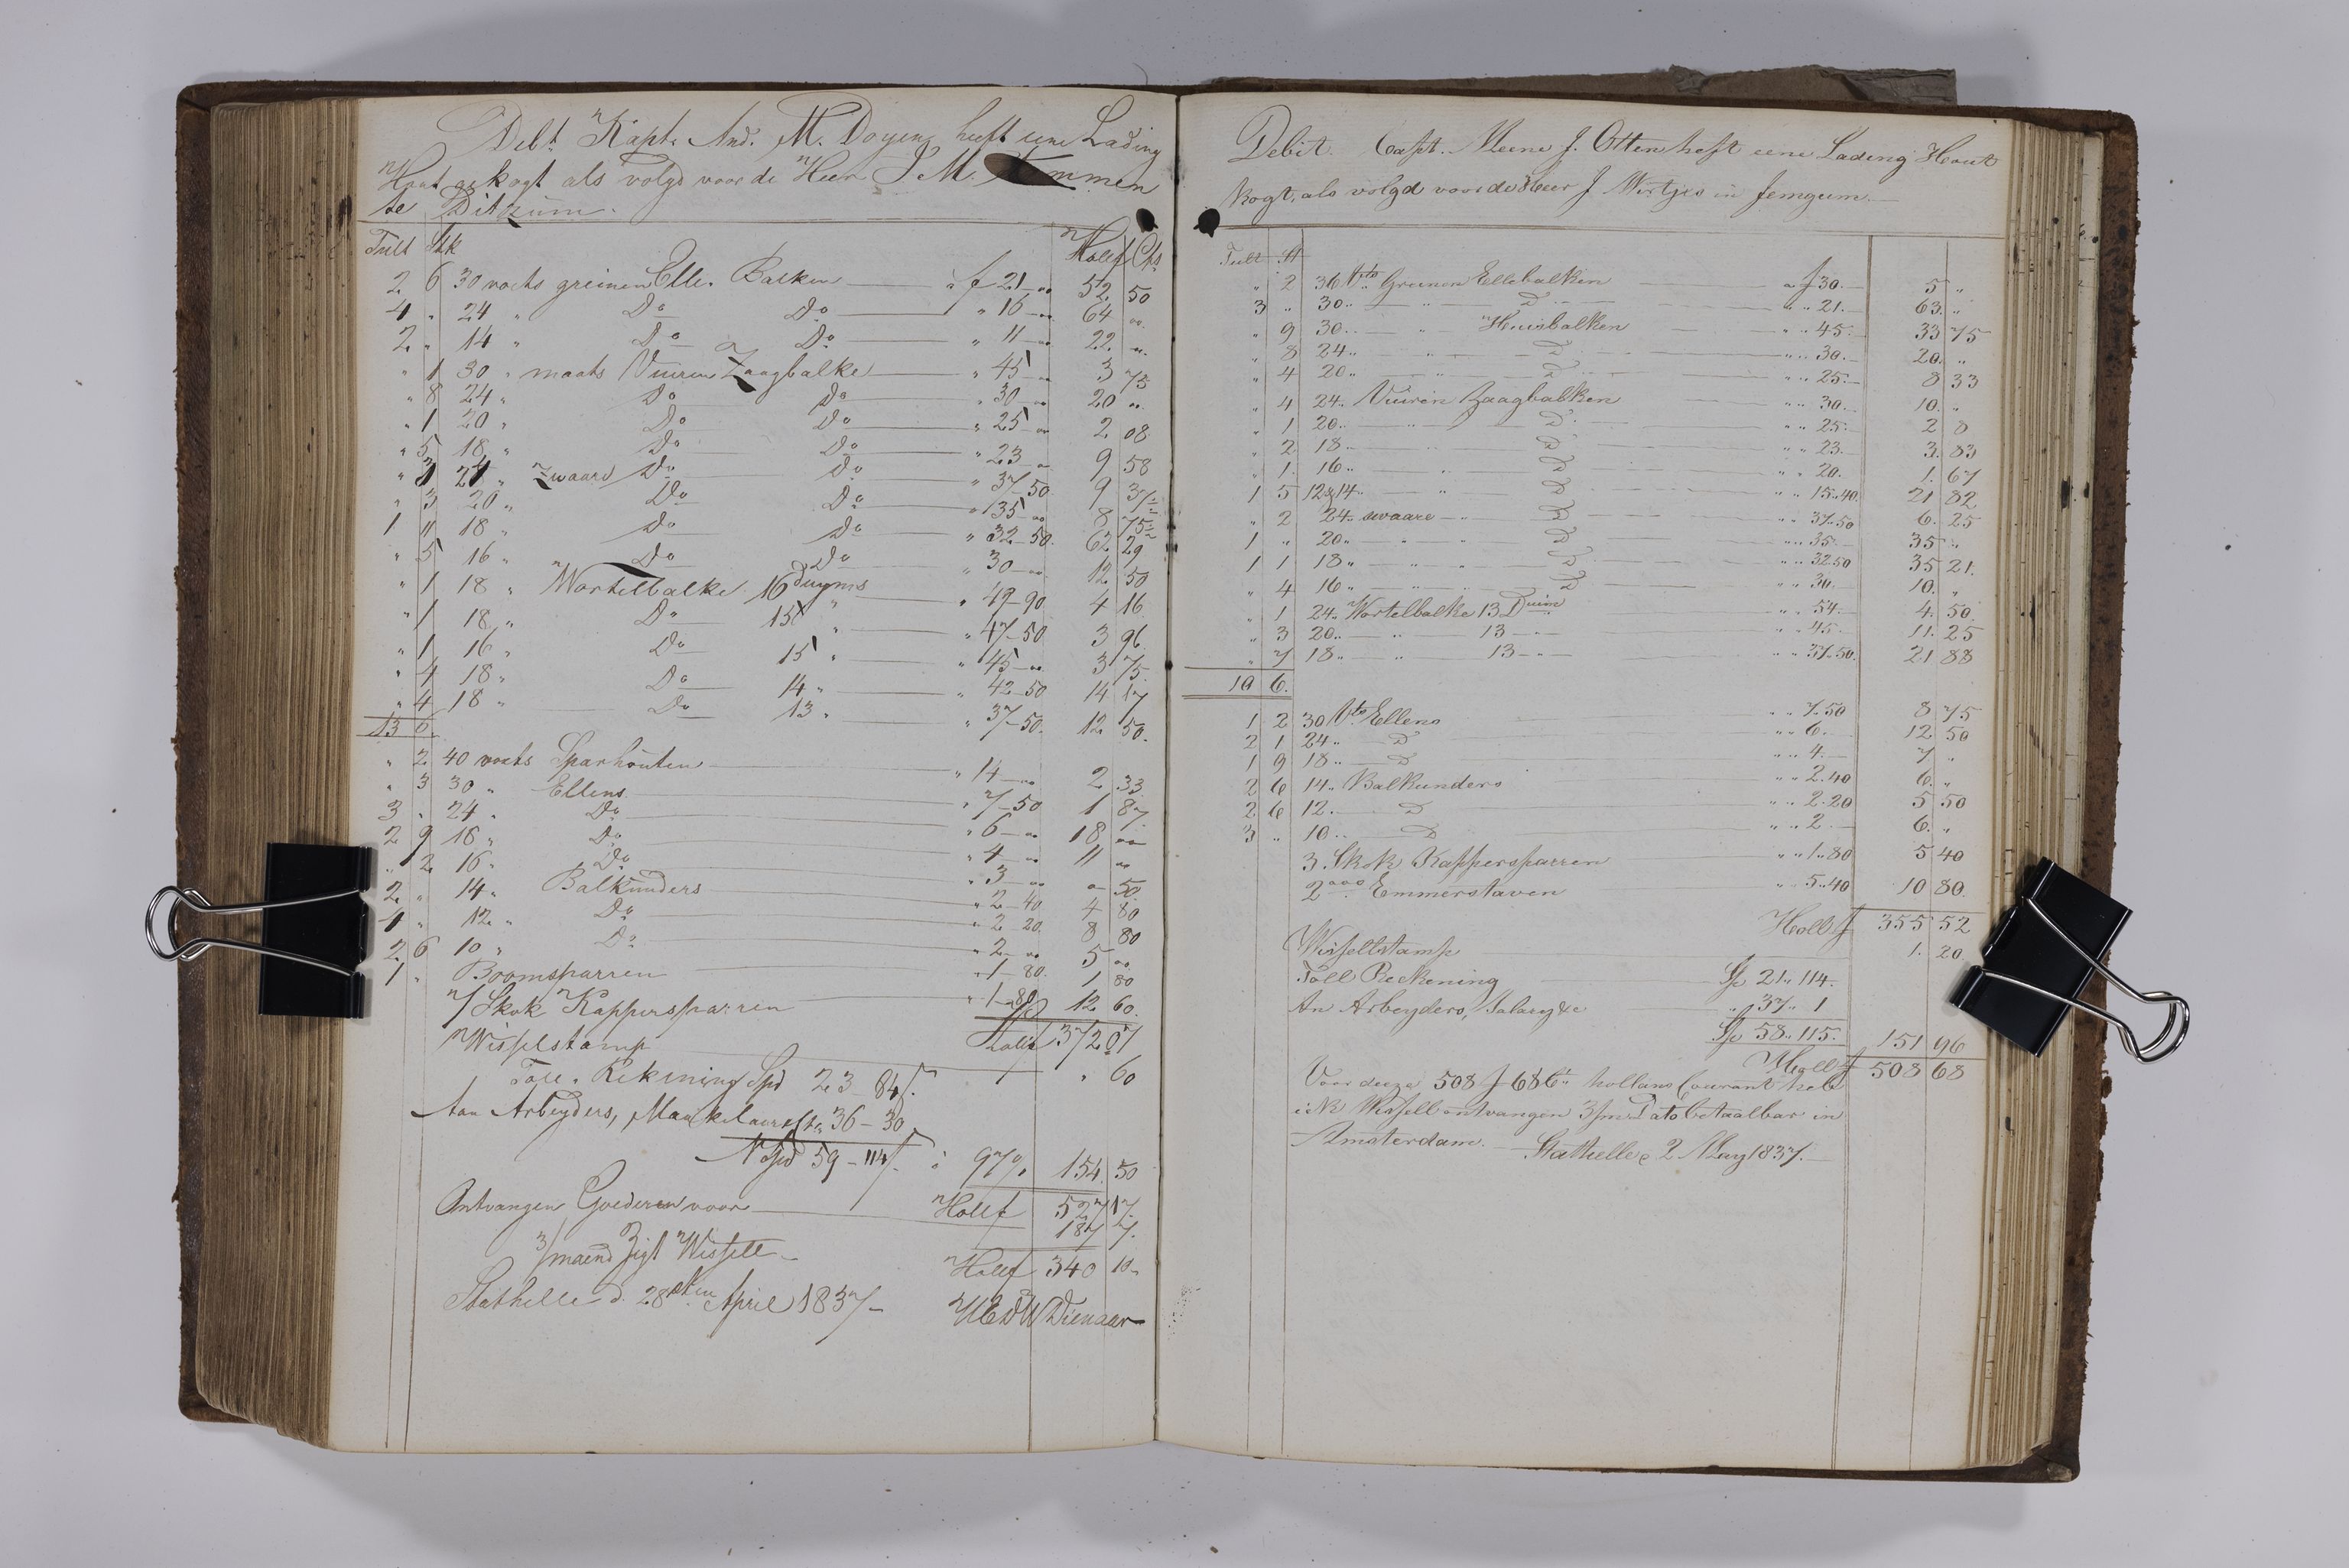 Debt. Kapt. And. M. Doyen heeft eene Lading
Hout gekogt als volgd voor de Heer J M. mmen
te Ditzum.
Tult Stk Hollf Cts.
2 6 30 voets greinen Elle. Balken à f 21 – „ 52 50
4 „ 24 „ Do Do „ 16 – „ 64 „
2 „ 14 „ Do Do „ 11 – „ 22 „
„ 1 30 „ maats Vuiren Zaagbalke „ 45 – „ 3 75
„ 8 24 „ Do Do „ 30 – „ 20 „
„ 1 20 „ Do Do „ 25 – „ 2 08
„ 5 18 „ Do Do „ 23 – „ 9 58
„ 3 24 „ Zwaard Do Do „ 37–50 9 37
„ 3 20 „ Do Do „ 35 – „ 8 75
1 11 18 „ Do Do „ 32–50 62 29
„ 5 16 „ Do Do „ 30 – „ 12 50
„ 1 18 „ Wortelbalke 16 duyms „ 49–90 4 16
„ 1 18 „ Do 15 „ „ 47–50 3 96
„ 1 16 „ Do 15 „ „ 45 – „ 3 75
„ 4 18 „ Do 14 „ „ 42–50 14 17
„ 4 18 „ Do 13 „ „ 37–50. 12 50.
13 6
„ 2 40 voets Sparhouten „ 14 – „ 2 33
„ 3 30 „ Ellens „ 7–50 1 87
3 „ 24 „ Do „ 6 – „ 18 „
2 9 18 „ Do „ 4 – „ 11 „
„ 2 16 „ Do „ 3 – „ „ 50
2 „ 14 „ Balkunders „ 2–40 4 80
4 „ 12 „ Do „ 2–20 8 80
2 6 10 „ Do „ 2 – „ 5 „
1 „ Boomsparren „ 1–80. 1 80
7 Skok Kappersparren „ 1–80 12 60.
Hollf 372 07
Wisselstamp „ 60
Toll. Rekening Spd 23 – 84ß.
Aan Arbeyders, Maakelaars &c 36 – 30
Spd 59 – 114ß. à 97% 154. 50
Hollf 527 17.
Ontvangen Goederen voor 187 7.
3/maend Zigt Wissell – Hollf 340 10
Stathelle d. 28sten April 1837 – UEdW Dienaar
Debit. Capt. Meene J. Otten heft eene Lading Hout
kogt, als volgd voor de Heer J. Wirtjes in Jemgum.
Tult St
„ 2 36 Vts Greenen Ellebalken a f 30. 5 „
3 „ 30 „ „ D „ „ 21. 63. „
„ 9 30 „ „ Huisbalken „ „ 45. 33 75
„ 8 24 „ „ D „ „ 30. 20. „
„ 4 20 „ „ D „ „ 25. 8 33
„ 4 24 „ Vuiren Zaagbalken „ „ 30. 10. „
„ 1 20 „ „ D „ „ 25. 2 8
„ 2 18 „ „ D „ „ 23. 3. 83
„ 1. 16 „ „ D „ „ 20. 1. 67
1 5 12 & 14 „ „ D „ „ 15..40. 21 82
„ 2 24 „ swaare „ D „ „ 37.50 6. 25
1 „ 20 „ „ „ D „ „ 35. 35 „
1 1 18 „ „ „ D „ „ 32.50 35 21.
„ 4 16 „ „ „ D „ „ 30. 10. „
„ 1 24 „ Wortelbalke 13 Duim „ „ 54. 4. 50.
„ 3 20 „ „ 13 „ „ „ 45. 11. 25
„ 7 18 „ „ 13 „ „ „ 37.50. 21 88
10 6.
1 2 30 Vts Ellens „ „ 7.50 8 75
2 1 24 „ D „ „ 6. 12. 50
1 9 18 „ D „ „ 4. 7 „
2 6 14 „ Balkunders „ „ 2.40 6. „
2. 6 12. D „ „ 2.20 5 50
3 „ 10 „ D „ „ 2 6. „
3. Skok Kappersparren „ „ 1..80 5 40
2000 Emmerstaven „ „ 5..40 10 80.
Holl f 355 52
Wisselstamp 1. 20
Toll Reckening Sp 21 „ 114.
An Arbeyders, Salary &c „ 37 „ 1
Sp 58 „ 115. 151 96
Holl f 508 68
Voor deeze 508 f 68 Ct hollans Courant heb
ick Wissell ontvangen 3/m Dato betaalbar in
Amsterdam. – Stathelle 2 May 1837.